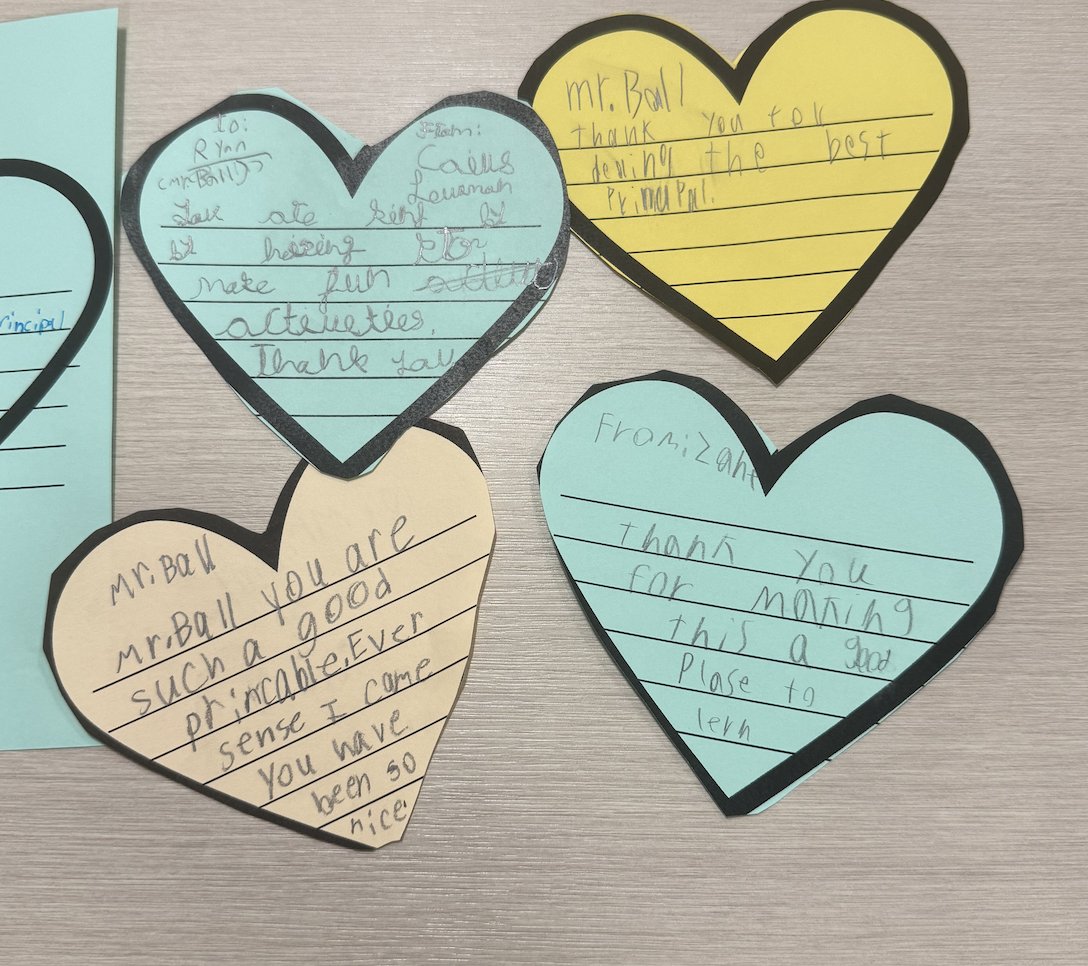 rincipal
To:
Ryan
(Mr. Ball)
From:
Caius
You are
by
make fun
activeties.
Thank You
mr. Ball
thank you for
the best
Mr. Ball
Mr. Ball you are
such a good
princable. Ever
sense I came
you have
been so
nice.
From: izaht
thank you
for making
this a good
Plase to
lern